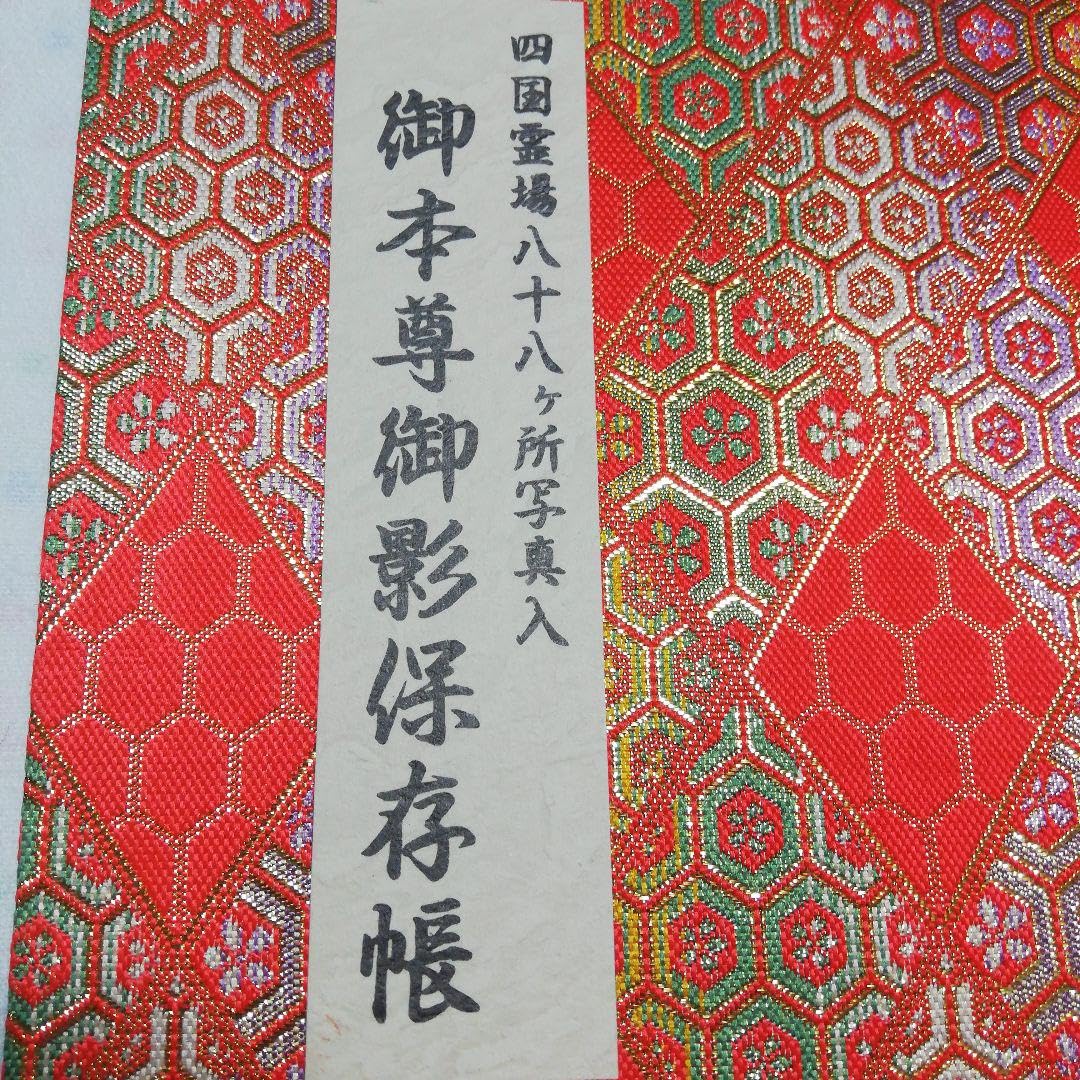 四国霊場八十八ヶ所写真入
御本尊御影保存帳